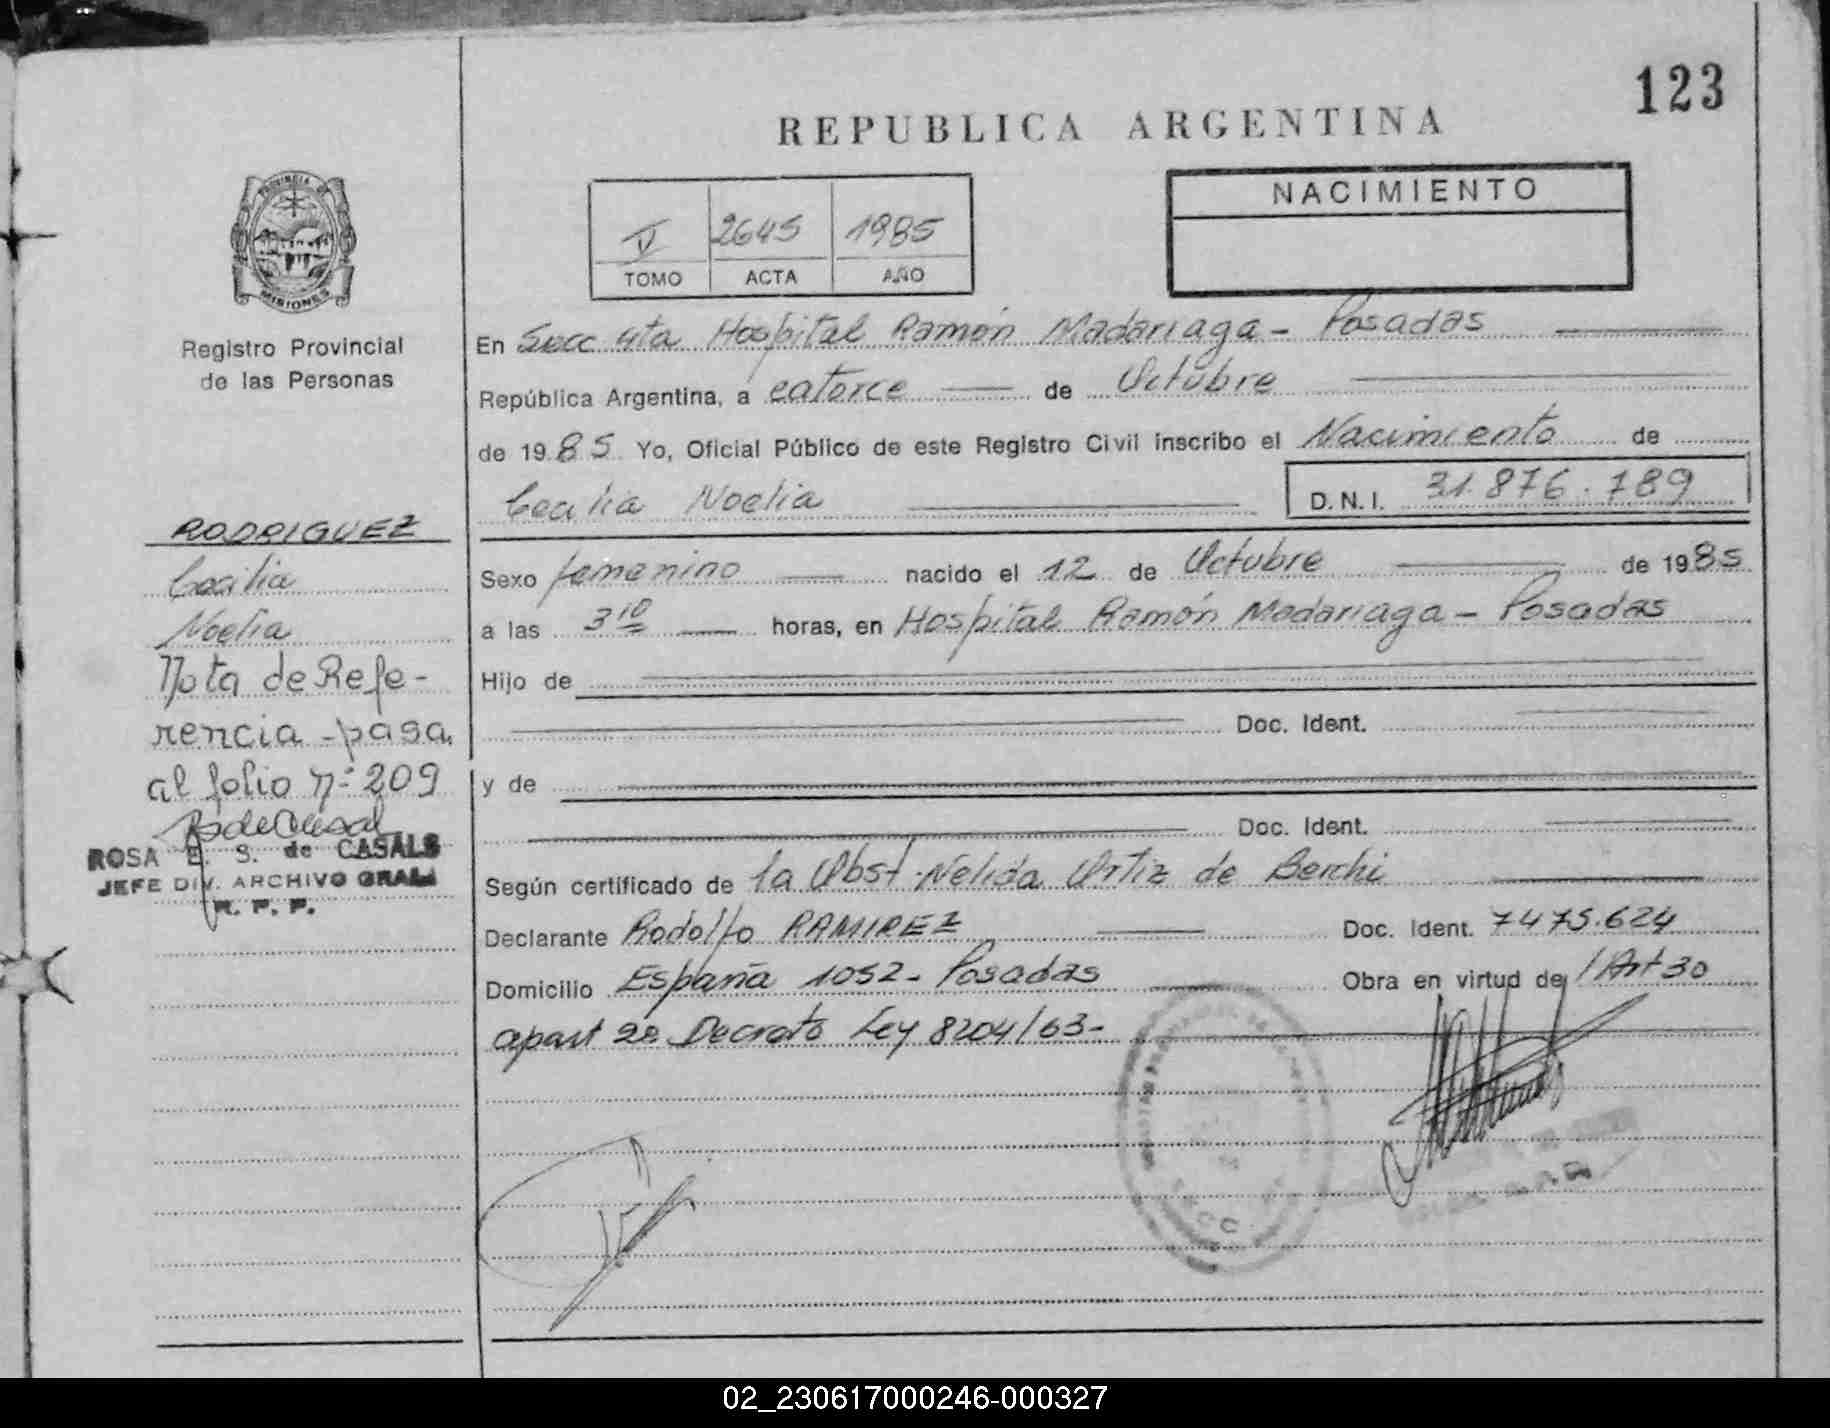 123
REPUBLICA ARGENTINA
PROVINCIA DE
MISIONES
Registro Provincial
de las Personas
V 2645 1985
TOMO ACTA AÑO
NACIMIENTO
En Secc 4ta Hospital Ramón Madariaga - Posadas
República Argentina, a catorce de Octubre
de 1985 Yo, Oficial Público de este Registro Civil inscribo el Nacimiento de
Cecilia Noelia D.N.I. 31.876.789
RODRIGUEZ
Cecilia
Noelia
Nota de Refe-
rencia - pasa
al folio nº 209
ROSA E. S. de CASALS
JEFE DIV. ARCHIVO GRAL
R. P. P.
Sexo femenino nacido el 12 de Octubre de 1985
a las 3 10 horas, en Hospital Ramón Madariaga - Posadas
Hijo de
Doc. Ident.
y de
Doc. Ident.
Según certificado de la Obst. Nelida Ortiz de Berchi
Declarante Rodolfo RAMIREZ Doc. Ident. 7475.624
Domicilio España 1052 - Posadas Obra en virtud del Art 30
apart 2º Decreto Ley 8204/63-
02_230617000246-000327